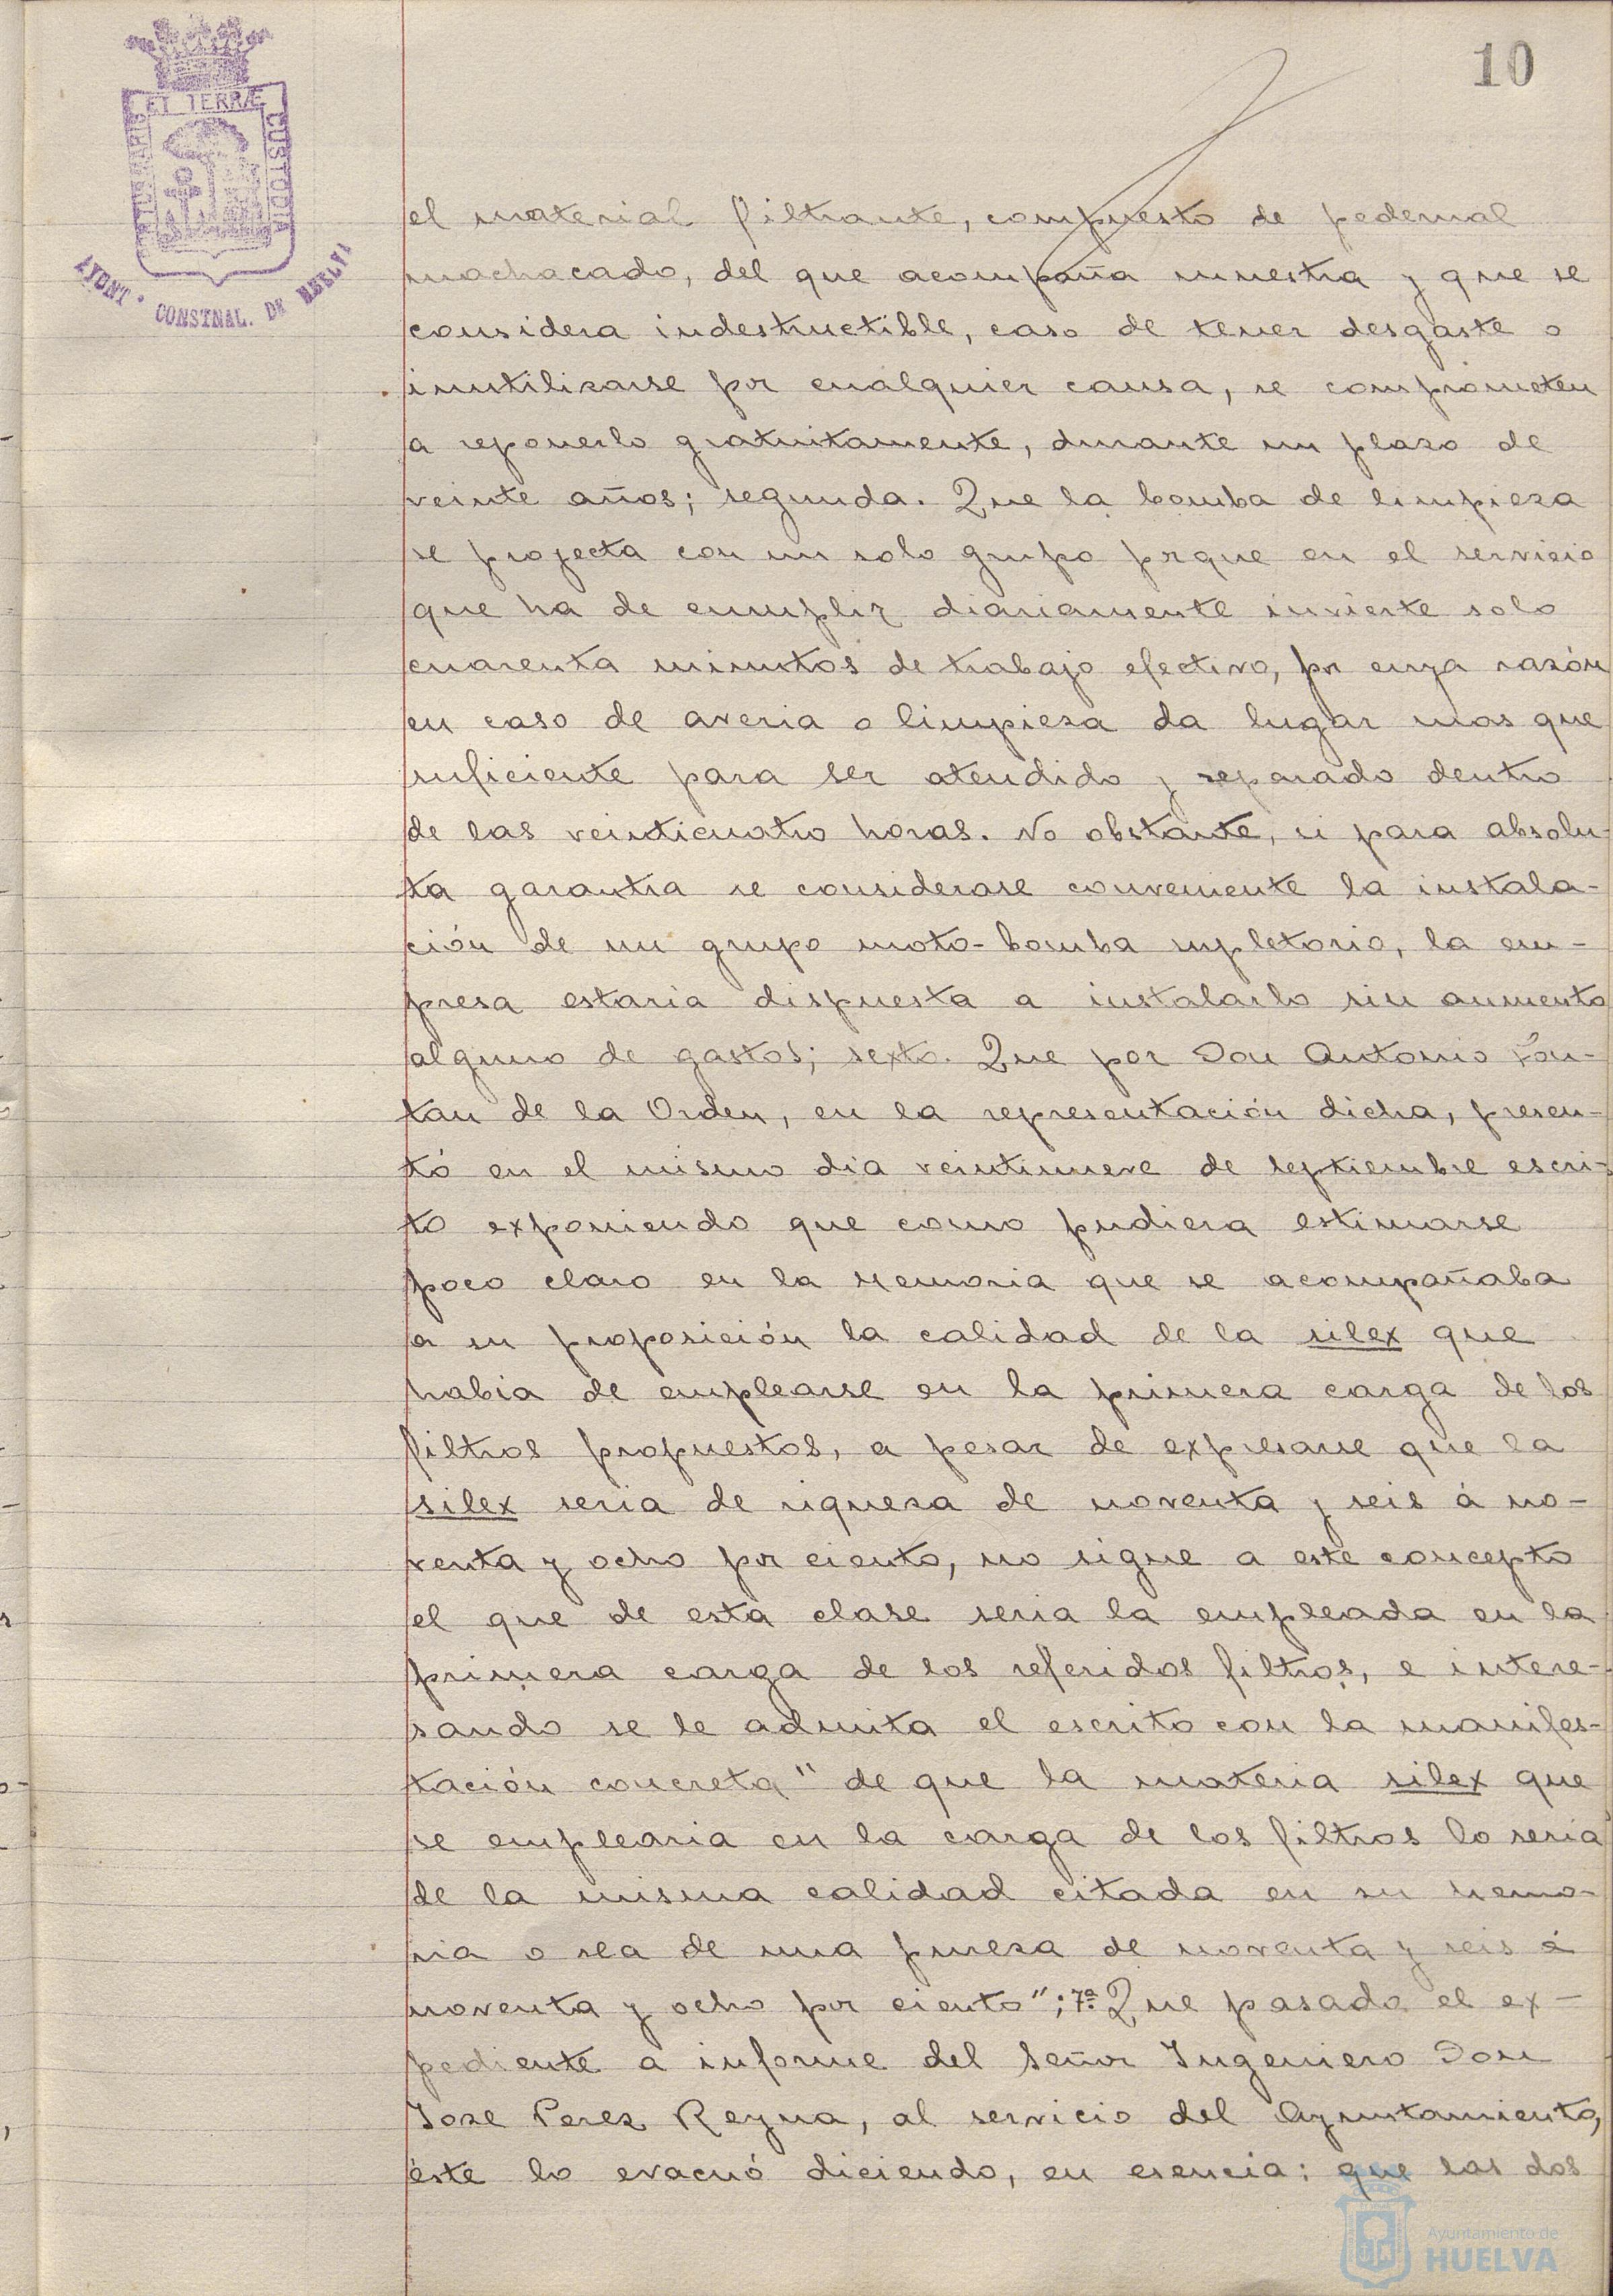 10
ET TERRÆ
CUSTODIA
AYONT. CONSTNAL. DE HUELVA
el material filtrante, compuesto de pedernal
machacado, del que acompaña muestra y que se
considera indestructible, caso de tener desgaste o
inutilizarse por cualquier causa, se comprometen
a reponerlo gratuitamente, durante un plazo de
veinte años; segunda. Que la bomba de limpieza
se projecta con un solo grupo porque en el servicio
que ha de cumplir diariamente invierte solo
cuarenta minutos de trabajo efectivo, por cuya razón
en caso de averia o limpieza da lugar mas que
suficiente para ser atendido y reparado dentro
de las veinticuatro horas. No obstante, si para absolu-
ta garantia se considerase conveniente la instala-
ción de un grupo moto-bomba supletorio, la em-
presa estaria dispuesta a instalarlo sin aumento
alguno de gastos; sexto. Que por Don Antonio Fon-
tan de la Orden, en la representación dicha, presen-
tó en el mismo dia veintinueve de septiembre escri-
to exponiendo que como pudiera estimarse
poco claro en la Memoria que se acompañaba
a su proposición la calidad de la silex que
habia de emplearse en la primera carga de los
filtros propuestos, a pesar de expresarse que la
silex seria de riqueza de noventa y seis á no-
venta y ocho por ciento, no sigue a este concepto
el que de esta clase seria la empleada en la
primera carga de los referidos filtros, e intere-
sando se le admita el escrito con la manifes-
tación concreta "de que la materia silex que
se emplearia en la carga de los filtros lo seria
de la misma calidad citada en su Memo-
ria o sea de una pureza de noventa y seis á
noventa y ocho por ciento"; 7ª. Que pasado el ex-
pediente a informe del Señor Ingeniero Don
Jose Perez Reyna, al servicio del Ayuntamiento,
éste lo evacuó diciendo, en esencia: que las dos
Ayuntamiento de
HUELVA